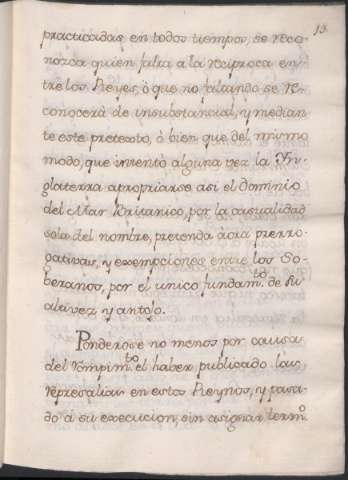 13.
practicadas en todos tiempos, se reco-
nozca quien falta a la reciproca en-
tre los Reyes, ó que no faltando se re-
conocerà de insubstancial, y median-
te este pretexto, ò bien que del mismo
modo, que inventò alguna vez la Yn-
glaterra apropriarse asi el dominio
del Mar Britanico, por la casualidad
sola del nombre, pretenda àora prerro-
gativas, y exempciones entre los So-
beranos, por el unico fundam.to de su
altivez y antojo.
Ponderose no menos por causa
del rompim.to el haber publicado las
represalias en estos Reynos, y pasa-
do à su execucion, sin asignar term.o